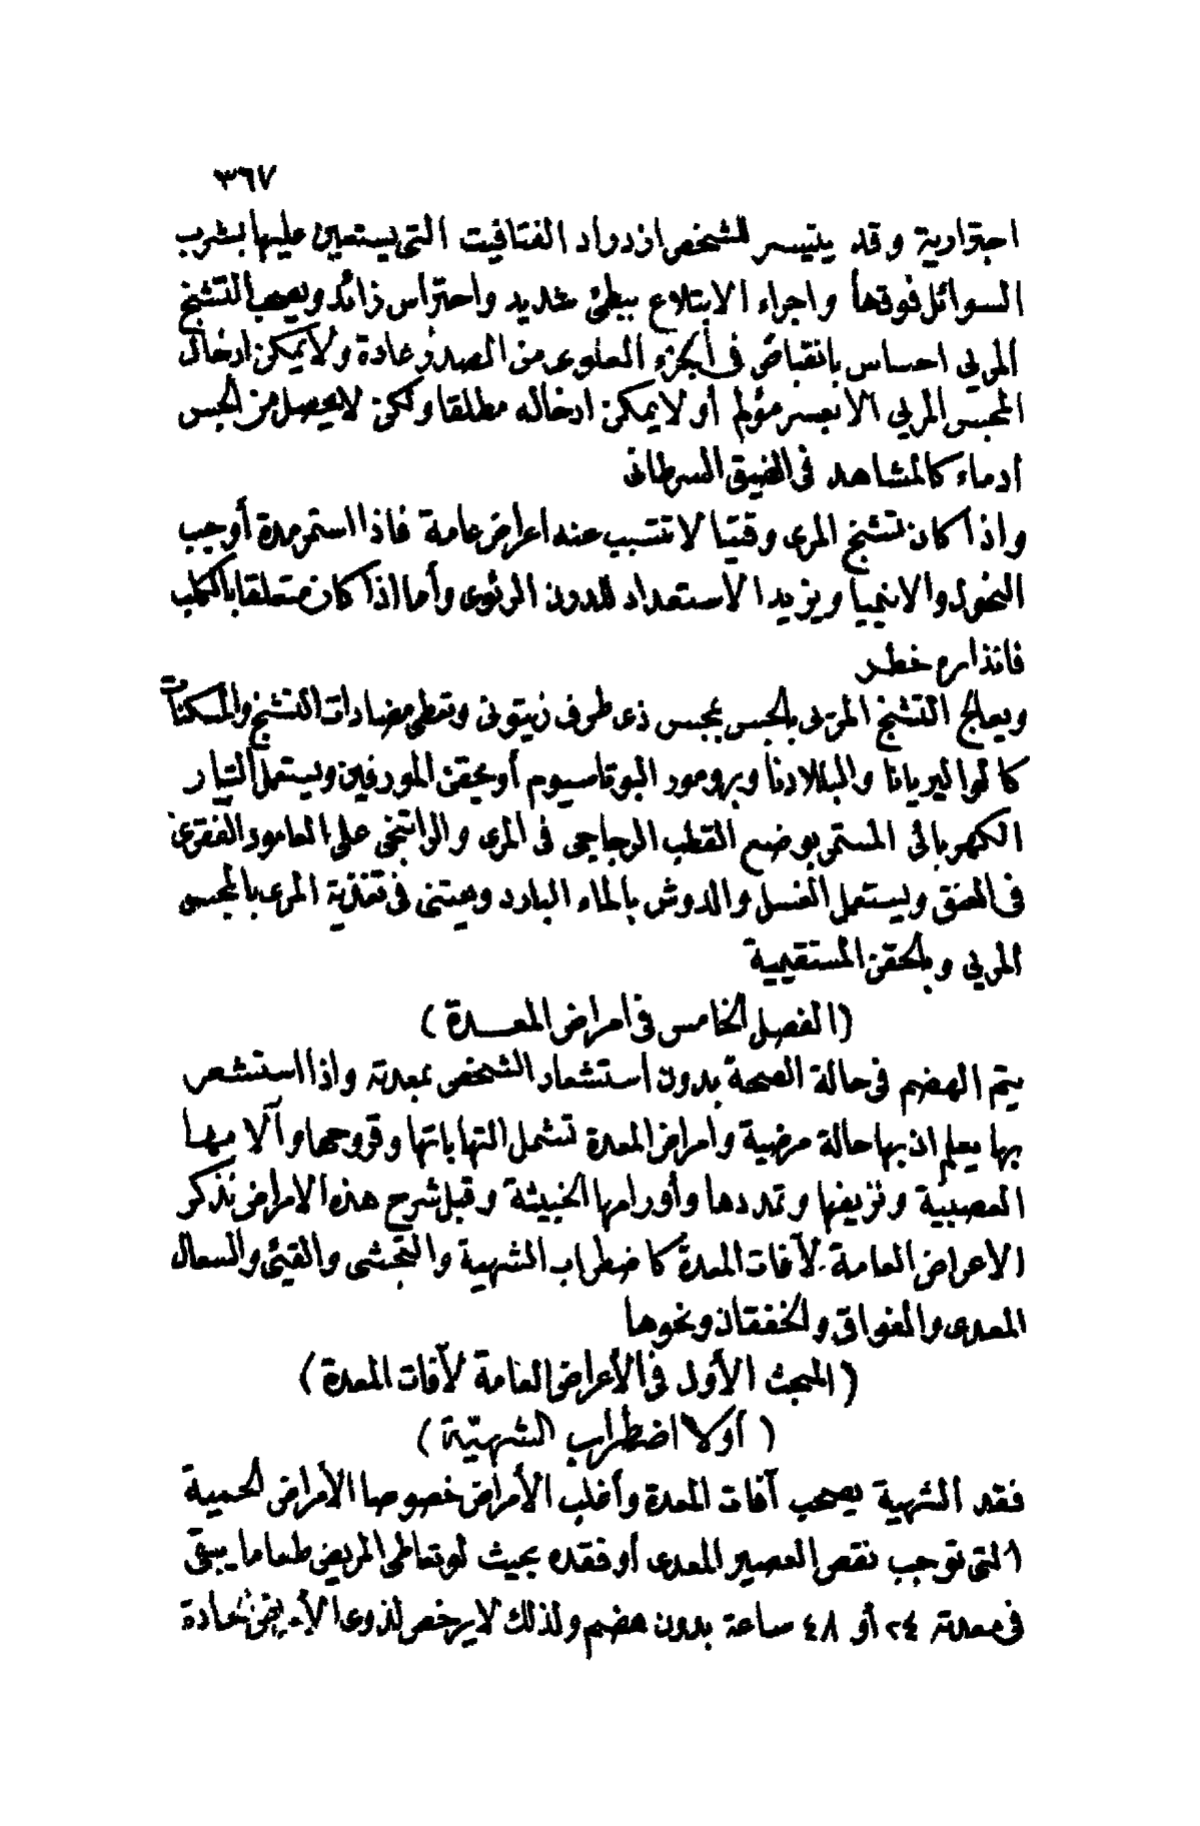 ٣٦٧
اجترارية وقد يتيسر للشخص ازدراد الفتافيت التى يستعين عليها بشرب
السوائل فوقها واجراء الابتلاع ببطئ شديد واحتراس زائد ويصحب التشنج
المريى احساس بانقباض فى الجزء العلوى من الصدر وعادة ولا يمكن ادخال
المجس المريى الا بعسر مؤلم أو لا يمكن ادخاله مطلقا ولكن لا يحصل من الجس
ادماء كالمشاهد فى الضيق السرطانى
واذا كان تشنج المرى وقتيا لا تتسبب عنه اعراض عامة فاذا استمر مدة أوجب
النحول والانيميا ويزيد الاستعداد للدرن الرئوى وأما اذا كان متعلقا بالكلب
فانذاره خطر
ويعالج التشنج المريى بالجس بمجس ذى طرف زيتونى وتعطى مضادات التشنج والمسكنات
كالواليريانا والبللادنا وبرومور البوتاسيوم أو يحقن المورفين ويستعمل التيار
الكهربائى المستمر بوضع القطب الزجاجى فى المرى والراتنجى على العامود الفقرى
فى العنق ويستعمل الغسل والدوش بالماء البارد ويعتنى فى تغذية المرى بالمجس
المريى وبالحقن المستقيمية
(الفصل الخامس فى امراض المعدة)
يتم الهضم فى حالة الصحة بدون استشعار الشخص بمعدته واذا استشعر
بها يعلم اذ بها حالة مرضية وامراض المعدة تشمل التهاباتها وقروحها وآلامها
العصبية ونزيفها وتمددها وأورامها الخبيثة وقبل شرح هذه الامراض نذكر
الاعراض العامة لآفات المعدة كاضطراب الشهية والتجشى والقيئ والسعال
المعدى والفواق والخفقان ونحوها
(المبحث الأول فى الأعراض العامة لآفات المعدة)
(أولا اضطراب الشهيّة)
فقد الشهية يصحب آفات المعدة وأغلب الأمراض خصوصا الأمراض الحمية
التى توجب نقص العصير المعدى أو فقده بحيث لو تعاطى المريض طعاما يبقى
فى معدته ٢٤ أو ٤٨ ساعة بدون هضم ولذلك لا يرخص لذوى الأمراض عادة